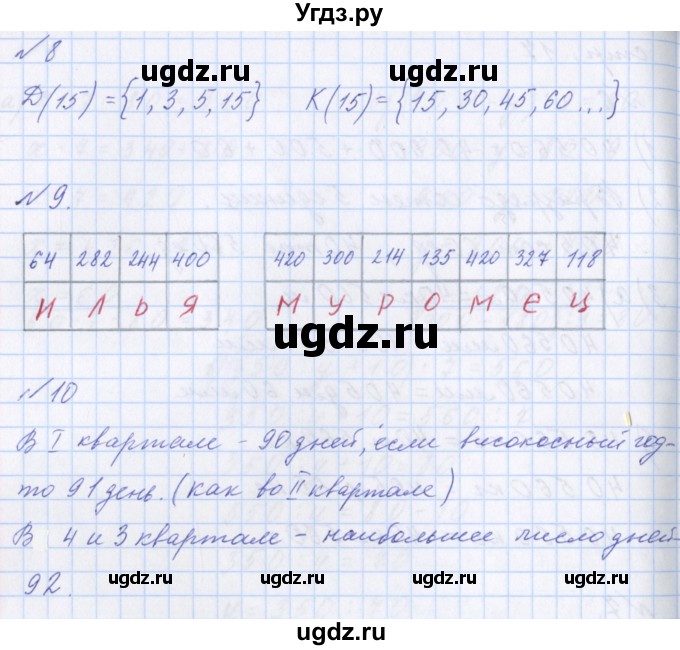 Угдз.ру
№ 8
ugdz.ru
Д(15) = {1, 3, 5, 15} К(15) = {15, 30, 45, 60...}
№ 9.
64 282 244 400 420 300 214 135 420 327 118
И Л Ь Я М У Р О М Е Ц
ugdz.ru
№ 10
В I квартале - 90 дней, если високосный год-
то 91 день. (как во II квартале)
В 4 и 3 квартале - наибольшее число дней-
92. ugdz.ru ugdz.ru ugdz.ru
ugdz.ru